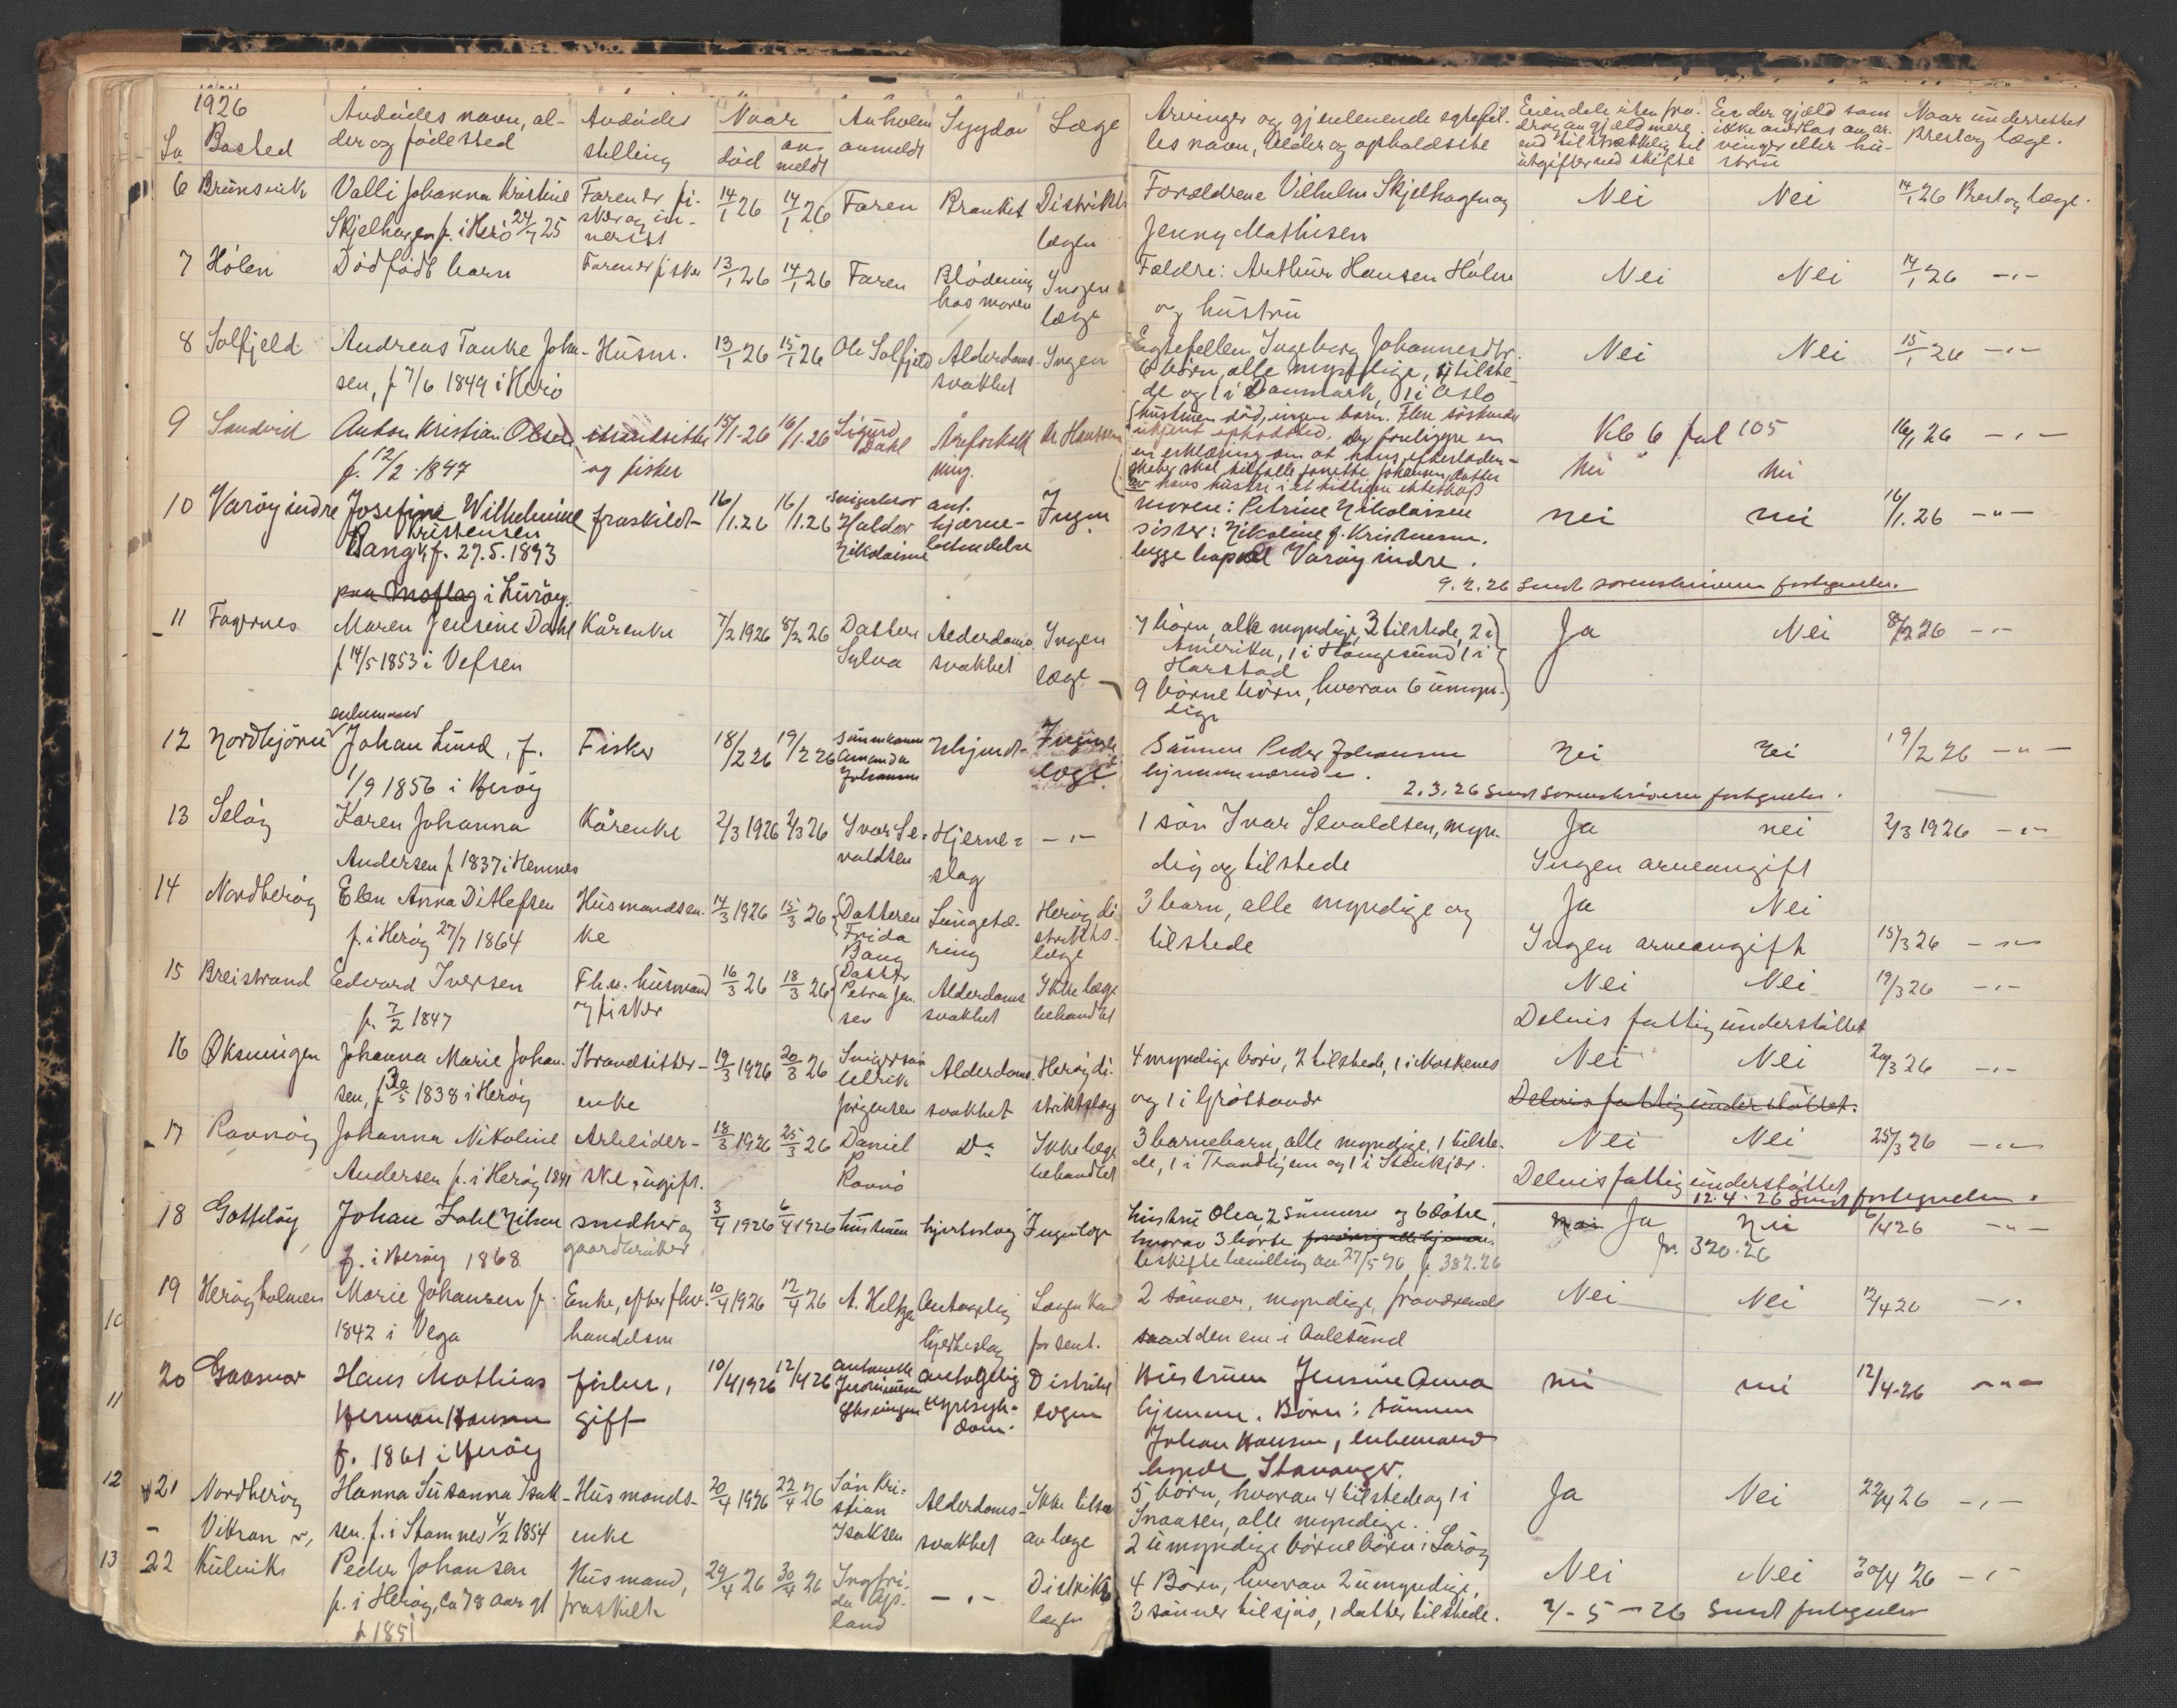 1926
Lø Bosted
Avdødes navn, al-
der og fødested
Avdødes
stilling
Naar
død
an-
meldt
Av hvem
anmeldt
Sygdom
Læge
Arvinger og gjenlevende egtefel-
les navn, Alder og opholdssted
Eiendele uten fra-
drag av gjæld mere
end tilstrækkelig til
utgifter ved skifte
Er der gjæld som
ikke overtas av ar-
vinger eller hu-
stru
Naar underrettet
Prest og læge.
6 Brunsvik
Valli Johanna Kristine
Skjelhagen f. i Herø 24/7 25
Faren er fi-
sker og in-
nerist
14/1 26
14/1 26
Faren
Bronkit
Distrikts
lægen
Forældrene Vilhelm Skjelhagen og
Jenny Mathisen
Nei
Nei
14/1 26 Prest og læge.
7 Hølen
Dødfødt barn
Faren er fisker
13/1 26
14/1 26
Faren
Blødning
hos moren
Ingen
læge
Fældre: Arthur Hansen Hølen
og hustru
Nei
Nei
14/1 26 -"-
8 Solfjeld
Andreas Tanke Johan-
sen, f 7/6 1849 i Herø
Husm.
13/1 26
15/1 26
Ole Solfjeld
Alderdoms-
svakhet
Ingen
Egtefellen Ingeborg Johannesdtr.
6 børn, alle myndige, 4 tilste-
de og 1 i Danmark, 1 i Oslo
Nei
Nei
15/1 26 -"-
9 Sandvik
Anton Kristian Olsen
f. 12/2 1847
strandsitter
og fisker
15/1-26
16/1-26
Sigurd
Dahl
Åreforkalk
ning.
Dr. Hanssen
hustruen død, ingen barn. Flere søskende
ukjent opholdssted. Der foreligger en
en erklæring om at hans efterladen-
skaber skal tilfalle Janette Johansen, datter
av hans hustru i et tidligere ekteskap
Vkb 6 fol 105
nei
nei
16/1 26 -"-
10 Varøy indre
Josefine Wilhelmine
Kristensen
Bang f. 27.5.1893
paa Moflag i Lurøy.
fraskilt
16/1.26
16/1.26
Svigerbror
Haldor
Nikolaisen
ant.
hjærne-
betendelse
Ingen
moren: Petrine Nikolaisen
søster: Nikoline f. Kristensen.
begge bopæl Varøy indre.
nei
nei
16/1.26 -"-
9.2.26 Sendt sorenskriveren fortegnelse.
11 Fagernes
Maren Jensine Dahl
f 14/5 1853 i Vefsen
Kårenke
7/2 1926
8/2 26
Datteren
Sylva
Alderdoms-
svakhet
Ingen
læge
7 børn, alle myndige, 3 tilstede, 2 i
Amerika, 1 i Haugesund 1 i
Harstad
9 børnebørn, hvorav 6 umyn-
dige
Ja
Nei
8/2 26 -"-
12 Nordhjørn
enkemand
Johan Lund, f.
1/9 1856 i Herøy
Fisker
18/2 26
19/2 26
Sønnekonen
Amanda
Johansen
Ukjendt
Ingen
læge
Sønnen Peder Johansen
hjemmeværende.
Nei
Nei
19/2 26 -"-
2.3.26 Sendt Sorenskriveren fortegnelse.
13 Seløy
Karen Johanna
Andersen f 1837 i Hemnes
Kårenke
2/3 1926
2/3 26
Ivar Se-
valdsen
Hjerne-
slag
-"-
1 søn Ivar Sevaldsen, myn-
dig og tilstede
Ja
nei
Ingen arveavgift
2/3 1926 -"-
14 Nordherøy
Elen Anna Ditlefsen
f. i Herøy 27/7 1864
Husmandsen-
ke
14/3 1926
15/3 26
Datteren
Frida
Bang
Lungetæ-
ring
Herøy di
strikts-
læge
3 barn, alle myndige og
tilstede
Ja
Nei
Ingen arveavgift
15/3 26 -"-
15 Breistrand
Edvard Iversen
f. 7/2 1847
Fh.v. husmand
og fisker
16/3 26
18/3 26
Datter
Petra Jen
sen
Alderdoms
svakhet
Ikke læge
behandlet
Nei
Nei
Delvis fattigunderstøttet
19/3 26 -"-
16 Øksningen
Johanna Marie Johan-
sen, f 30/5 1838 i Herøy
Strandsitter-
enke
19/3 1926
20/3 26
Svigersøn
Ulrik
Jørgensen
Alderdoms-
svakhet
Herøy di-
striktslæg
4 myndige børn, 2 tilstede, 1 i Moskenes
og 1 i Grøttandr
Nei
Nei
Delvis fattigunderstøttet.
20/3 26 -"-
17 Ravnøy
Johanna Nikoline
Andersen f. i Herøy 1841
Arbeider-
ske, ugift.
18/3 1926
25/3 26
Daniel
Ravnø
Do
Ikke læge
behandlet
3 barnebarn, alle myndige, 1 tilste-
de, 1 i Trondhjem og 1 i Stenkjær.
Nei
Nei
Delvis fattigunderstøttet
25/3 26 -"-
12.4.26 Sendt fortegnelse.
18 Gåsøy
Johan Zahl Nilsen
f. i Herøy 1868
smedker og
gaardbruker
3/4 1926
6/4 1926
hustruen
hjerteslag
Ingen læge
hustru Olea, 2 sønner og 6 døtre,
hvorav 3 borte forøvrig alle hjemme.
Uskiftebevilling av 27/5 26 f. 382.26
Nei Ja
Nei
jr. 320.26
6/4 26 -"-
19 Herøyholmen
Marie Johansen f.
1842 i Vega
Enke, efter fhv.
handelsm
10/4 1926
12/4 26
A. Helsen
Antagelig
hjerteslag
Lægen kom
for sent.
2 sønner, myndige, fraværende
samt den ene i Aalesund
Nei
Nei
12/4 26 -"-
10
20 Gaasvær
Hans Mathias
Herman Hansen
f. 1861 i Herøy
fisker,
gift
10/4 1926
12/4 26
Antonette
Øksningen
antagelig
nyresyk-
dom.
Distrikts
lægen
Hustruen Jensine Anna
hjemme. Børn: sønnen
Johan Hansen, enkemand
bopæl Stavanger.
nei
nei
12/4-26 -"-
11
12
21 Nordherøy
Hanna Susanna Isak-
sen. f. i Stamnes 4/2 1854
Husmands-
enke
20/4 1926
22/4 26
Søn Kri-
stian
Isaksen
Alderdoms-
svakhet
Ikke tilset
av læge
5 børn, hvorav 4 tilstede og 1 i
Snaasen, alle myndige.
2 umyndige børnebørn i Lurøy
Ja
Nei
22/4 26 -"-
13
22 Kulvik
Peder Johansen
f. i Herøy, Ca 78 aar gl
f 1851
Husmand,
fraskilt
29/4 26
30/4 26
Ingfri-
da Op-
land
-"-
Distrikts
lægen
4 Børn, hvorav 2 umyndige,
2 sønner tilsjøs, 1 datter tilstede.
Nei
Nei
30/4 26 -"-
4-5-26 Sendt fortegnelse